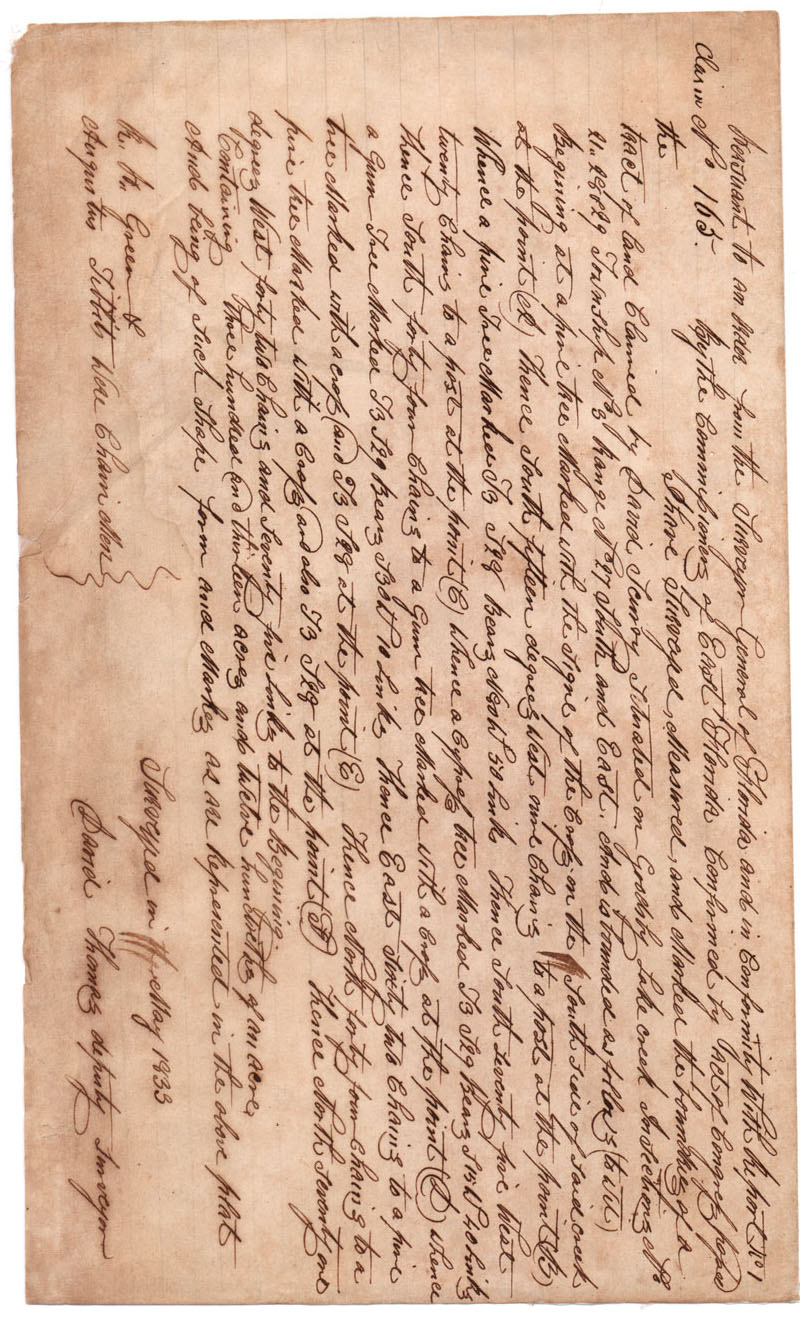 Pursuant to an order from the Surveyor General of Florida and in Conformity With Report No 1
Claim No 165. by the Commissioners of East Florida Confirmed by Acts of Congress passed
the I have Surveyed, Measured, and Marked the boundary of a
tract of land Claimed by David Scurry Situated on Creek In Sections No
21. 28 & 29 Township No 3 range No 27 South and East. And is bounded as follows (to wit)
Begining at a pine tree Marked with the Signe of the Cross on the South Side of Said creek
at the point (A) Thence South fifteen degrees West nine Chains to a post at the point (B)
Whence a pine Tree Marked Bears 50 links Thence South Seventy five West
twenty Chains to a post at the point (C) whence a Cypress tree Marked Bears 40 links
Thence South forty four Chains to a Gum tree Marked with a Cross at the point (D) whence
a Gum Tree Marked Bears 10 links Thence East Sixty two Chains to a pine
tree Marked with a cross and at the point (E) Thence North forty four Chains to a
pine tree Marked with a Cross and also at the point (F) Thence North Seventy one
degrees West forty two Chains and Seventy five links to the Begining
Containing Three hundred and thirteen acres and twelve hundredths of an acre,
And being of Such Shape form and Marks as are Represented in the above plat
Surveyed in May 1833
R. R. Green &
Augustus Tibbits Were Chain Men
David Thomas deputy Surveyor